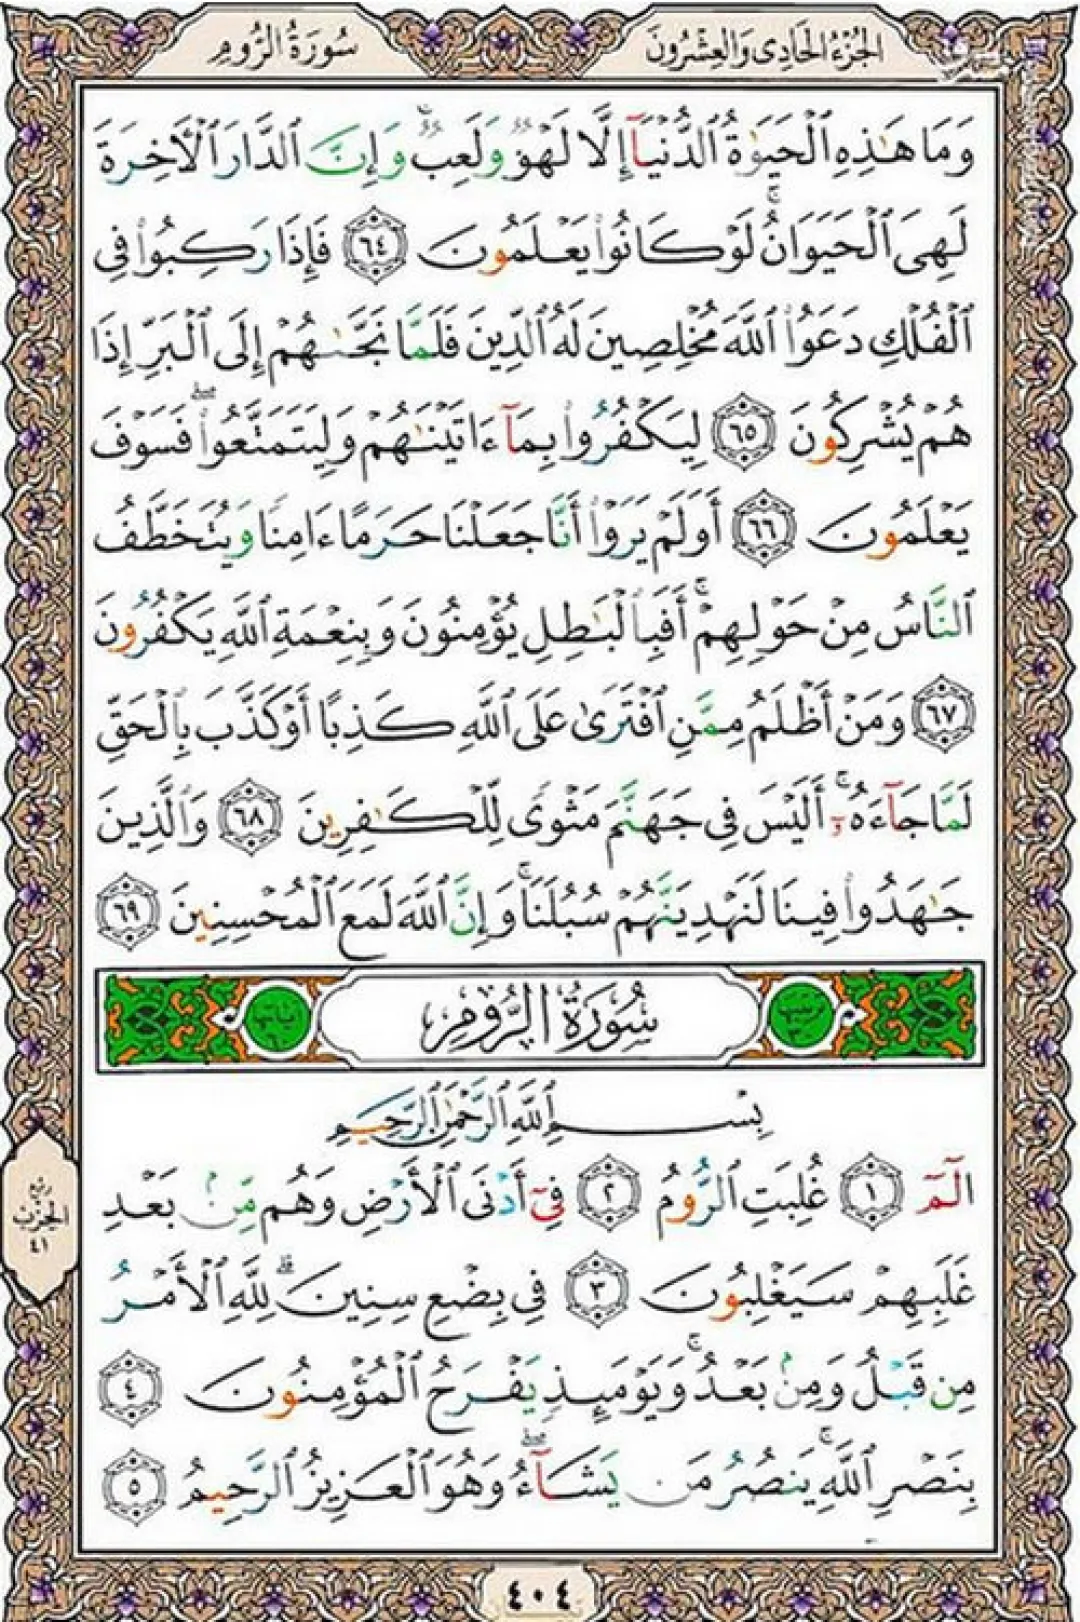 الجُزْءُ الحَادِى وَالعِشْرُونَ
سُورَةُ الرُّومِ
وَمَا هَـٰذِهِ ٱلْحَيَوٰةُ ٱلدُّنْيَآ إِلَّا لَهْوٌ وَلَعِبٌ ۚ وَإِنَّ ٱلدَّارَ ٱلْـَٔاخِرَةَ
لَهِىَ ٱلْحَيَوَانُ ۚ لَوْ كَانُوا۟ يَعْلَمُونَ ٦٤ فَإِذَا رَكِبُوا۟ فِى
ٱلْفُلْكِ دَعَوُا۟ ٱللَّهَ مُخْلِصِينَ لَهُ ٱلدِّينَ فَلَمَّا نَجَّىٰهُمْ إِلَى ٱلْبَرِّ إِذَا
هُمْ يُشْرِكُونَ ٦٥ لِيَكْفُرُوا۟ بِمَآ ءَاتَيْنَـٰهُمْ وَلِيَتَمَتَّعُوا۟ ۖ فَسَوْفَ
يَعْلَمُونَ ٦٦ أَوَلَمْ يَرَوْا۟ أَنَّا جَعَلْنَا حَرَمًا ءَامِنًا وَيُتَخَطَّفُ
ٱلنَّاسُ مِنْ حَوْلِهِمْ ۚ أَفَبِٱلْبَـٰطِلِ يُؤْمِنُونَ وَبِنِعْمَةِ ٱللَّهِ يَكْفُرُونَ
٦٧ وَمَنْ أَظْلَمُ مِمَّنِ ٱفْتَرَىٰ عَلَى ٱللَّهِ كَذِبًا أَوْ كَذَّبَ بِٱلْحَقِّ
لَمَّا جَآءَهُۥٓ ۚ أَلَيْسَ فِى جَهَنَّمَ مَثْوًى لِّلْكَـٰفِرِينَ ٦٨ وَٱلَّذِينَ
جَـٰهَدُوا۟ فِينَا لَنَهْدِيَنَّهُمْ سُبُلَنَا ۚ وَإِنَّ ٱللَّهَ لَمَعَ ٱلْمُحْسِنِينَ ٦٩
سُورَةُ الرُّومِ
بِسْمِ ٱللَّهِ ٱلرَّحْمَـٰنِ ٱلرَّحِيمِ
الٓمٓ ١ غُلِبَتِ ٱلرُّومُ ٢ فِىٓ أَدْنَى ٱلْأَرْضِ وَهُم مِّنۢ بَعْدِ
غَلَبِهِمْ سَيَغْلِبُونَ ٣ فِى بِضْعِ سِنِينَ ۗ لِلَّهِ ٱلْأَمْرُ
مِن قَبْلُ وَمِنۢ بَعْدُ ۚ وَيَوْمَئِذٍ يَفْرَحُ ٱلْمُؤْمِنُونَ ٤
بِنَصْرِ ٱللَّهِ ۚ يَنصُرُ مَن يَشَآءُ ۖ وَهُوَ ٱلْعَزِيزُ ٱلرَّحِيمُ ٥
ربع
الحزب
٤١
٤٠٤